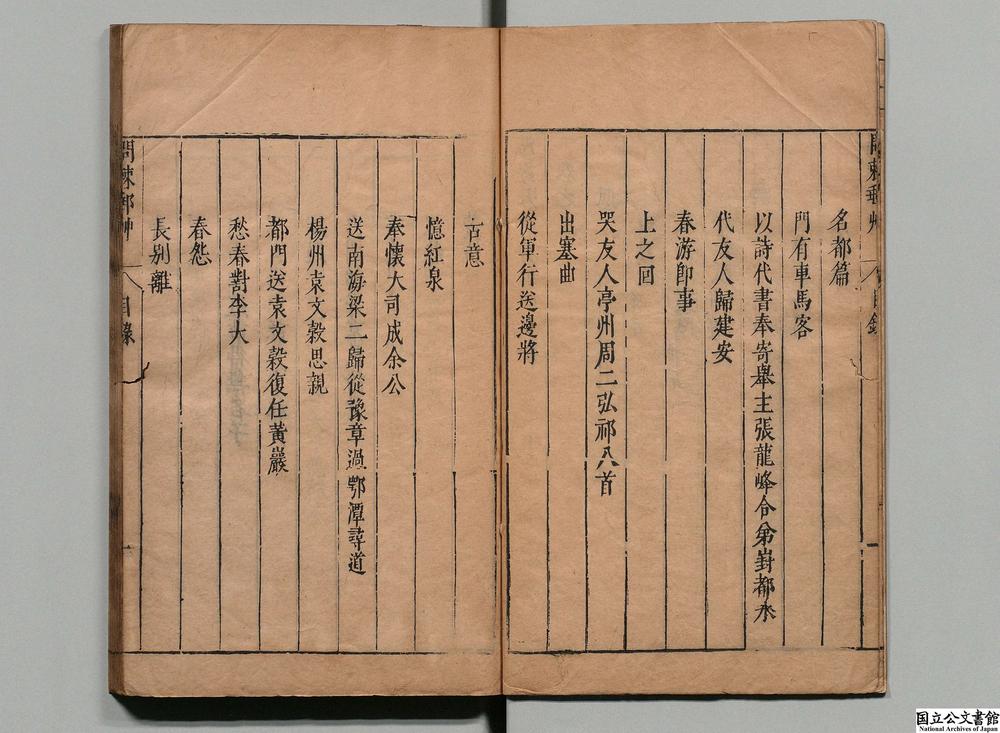 名都篇
門有車馬客
以詩代書奉寄舉主張龍峰令弟對都水
代友人歸建安
春游即事
上之回
哭友人亭州周二弘祁八首
出塞曲
從軍行送邊將
古意
憶紅泉
奉懷大司成余公
送南海梁二歸從豫章過鄂潭尋道
楊州袁文穀思親
都門送袁文穀復任黃巖
愁春對李大
春怨
長別離
目錄
一
国立公文書館
National Archives of Japan